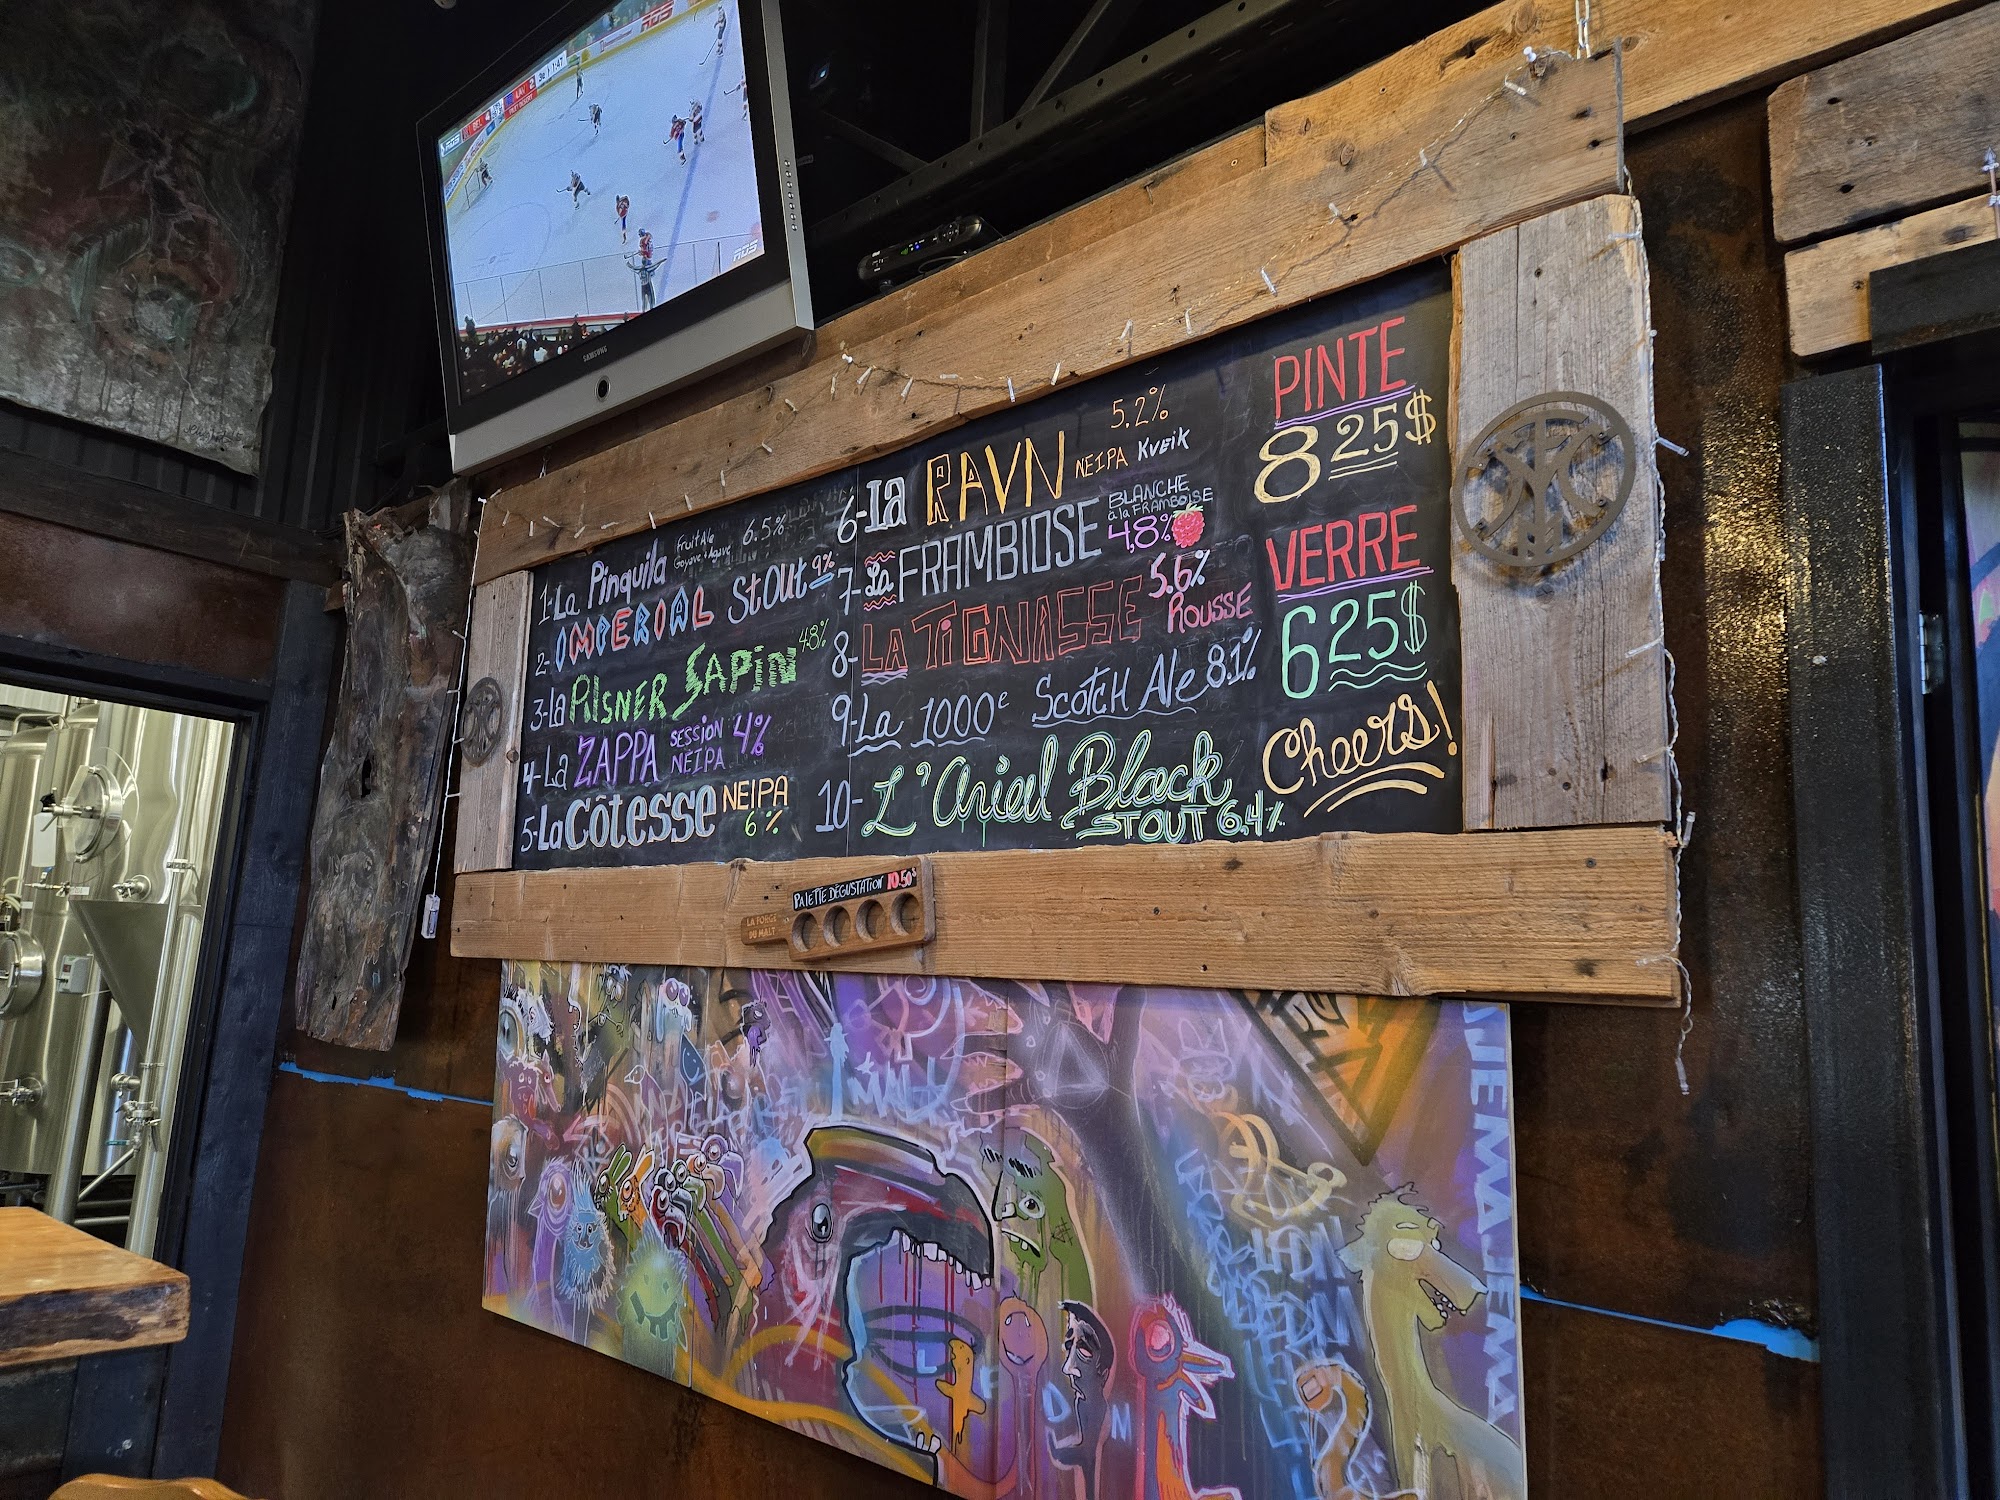 RDS
BEL 4
LAV 2
3e 1:47
RDS
RDS
SAMSUNG
1-La Pinquila Fruit Ale 6.5%
Goyave + Agave
2-IMPERIAL Stout 9%
3-La PILSNER SAPiN 4.8%
4-La ZAPPA SESSION NEIPA 4%
5-La Côtesse NEIPA 6%
6-La RAVN NEIPA KVEIK 5.2%
7-La FRAMBIOSE BLANCHE
à la FRAMBOISE
4,8%
8-LA TiGNASSE 5.6%
ROUSSE
9-La 1000e Scotch Ale 8.1%
10-L'Ariel Black
STOUT 6.4%
PINTE
8 25$
VERRE
6 25$
Cheers!
PALETTE DÉGUSTATION 10.50$
LA FORGE
DU MALT
MALT
JEMA
L F D M